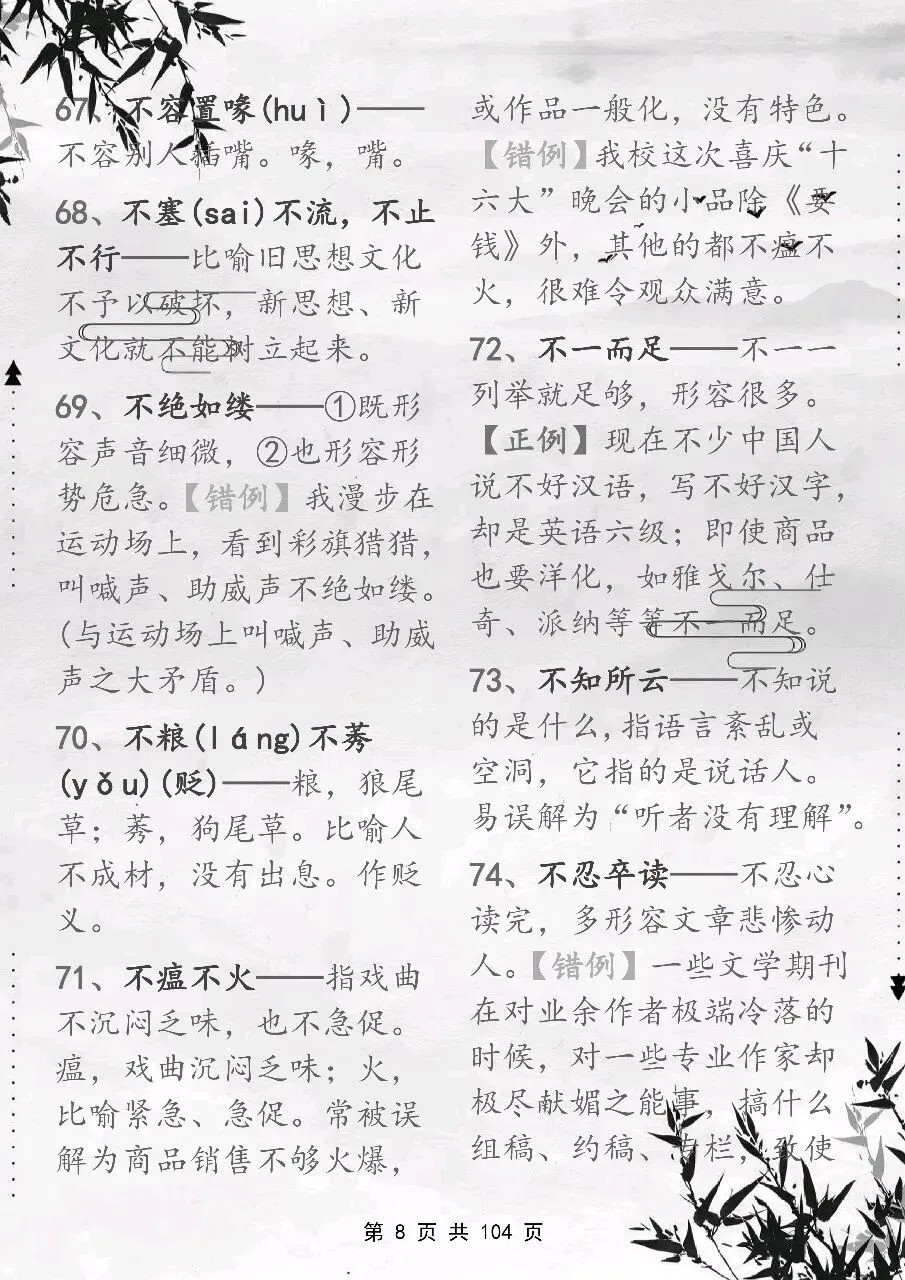 67、不容置喙(huì)——
不容别人插嘴。喙，嘴。
68、不塞(sai)不流，不止
不行——比喻旧思想文化
不予以破坏，新思想、新
文化就不能树立起来。
69、不绝如缕——①既形
容声音细微，②也形容形
势危急。【错例】我漫步在
运动场上，看到彩旗猎猎，
叫喊声、助威声不绝如缕。
(与运动场上叫喊声、助威
声之大矛盾。)
70、不粮(láng)不莠
(yǒu)(贬)——粮，狼尾
草；莠，狗尾草。比喻人
不成材，没有出息。作贬
义。
71、不瘟不火——指戏曲
不沉闷乏味，也不急促。
瘟，戏曲沉闷乏味；火，
比喻紧急、急促。常被误
解为商品销售不够火爆，
或作品一般化，没有特色。
【错例】我校这次喜庆“十
六大”晚会的小品除《要
钱》外，其他的都不瘟不
火，很难令观众满意。
72、不一而足——不一一
列举就足够，形容很多。
【正例】现在不少中国人
说不好汉语，写不好汉字，
却是英语六级；即使商品
也要洋化，如雅戈尔、仕
奇、派纳等等不一而足。
73、不知所云——不知说
的是什么,指语言紊乱或
空洞，它指的是说话人。
易误解为“听者没有理解”。
74、不忍卒读——不忍心
读完，多形容文章悲惨动
人。【错例】一些文学期刊
在对业余作者极端冷落的
时候，对一些专业作家却
极尽献媚之能事，搞什么
组稿、约稿、专栏，致使
第 8 页 共 104 页